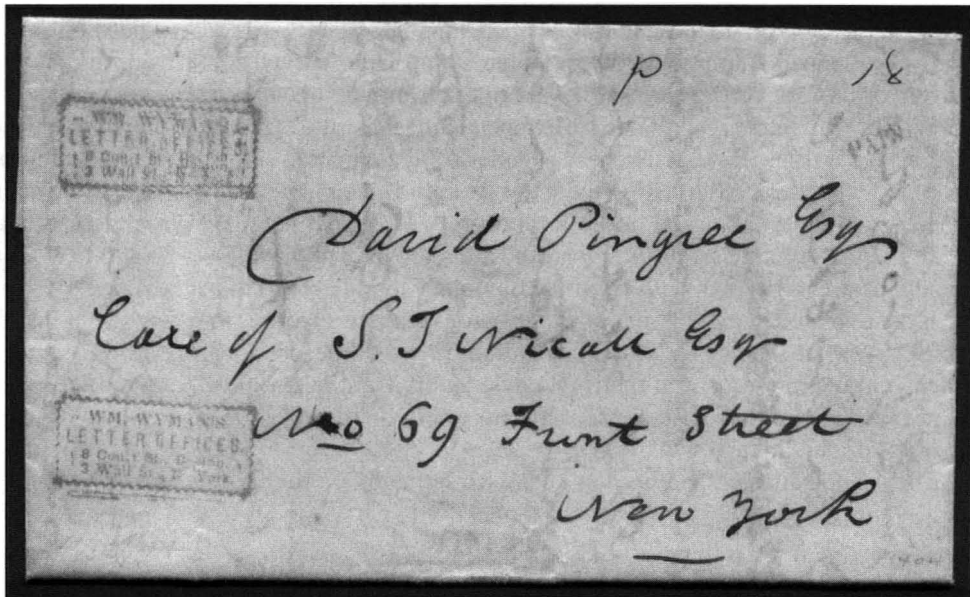 P 18
WM. WYMAN'S
LETTER OFFICES
8 Court St. Boston
3 Wall St.
David Pingree Esq
Care of S. J Nicoll Esq
No 69 Front Street
New York
WM. WYMAN'S
LETTER OFFICES.
8 Court St. Boston,
3 Wall St., N. York.